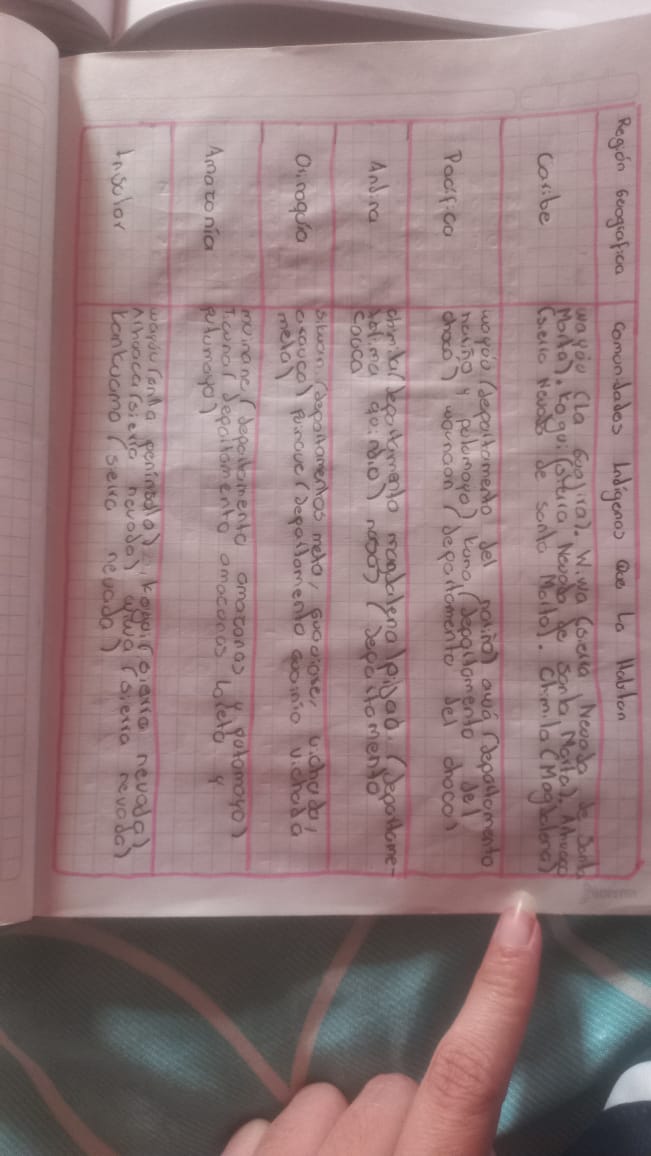 Región Geografica
Comunidades Indígenas que La Habitan
Caribe
wayúu (La Guajira). Wiwa (sierra Nevada de Santa
Marta). Kogui (sierra Nevada de Santa Marta). Arhuaco
(sierra Nevada de Santa Marta). Chimila (Magdalena)
Pacifica
wayúu (departamento del nariño) awá (departamento
nariño y putumayo) kuna (departamento del
choco) wounaan (departamento del choco)
Andina
chimila (departamento magdalena) pijao (departame-
tolima quindio) nasa (departamento
cauca
Orinoquia
sikuani (departamentos meta, guaviare, vichada,
arauca) puinave (departamento guainia vichada
meta)
Amazonia
muinane (departamento amazonas y putumayo)
Ticuna (departamento amazonas loreto y
putumayo)
Insular
wayúu (peninsula), kogui (sierra nevada)
Arhuaca (sierra nevada) wiwa (sierra nevada)
kankuamo (sierra nevada)